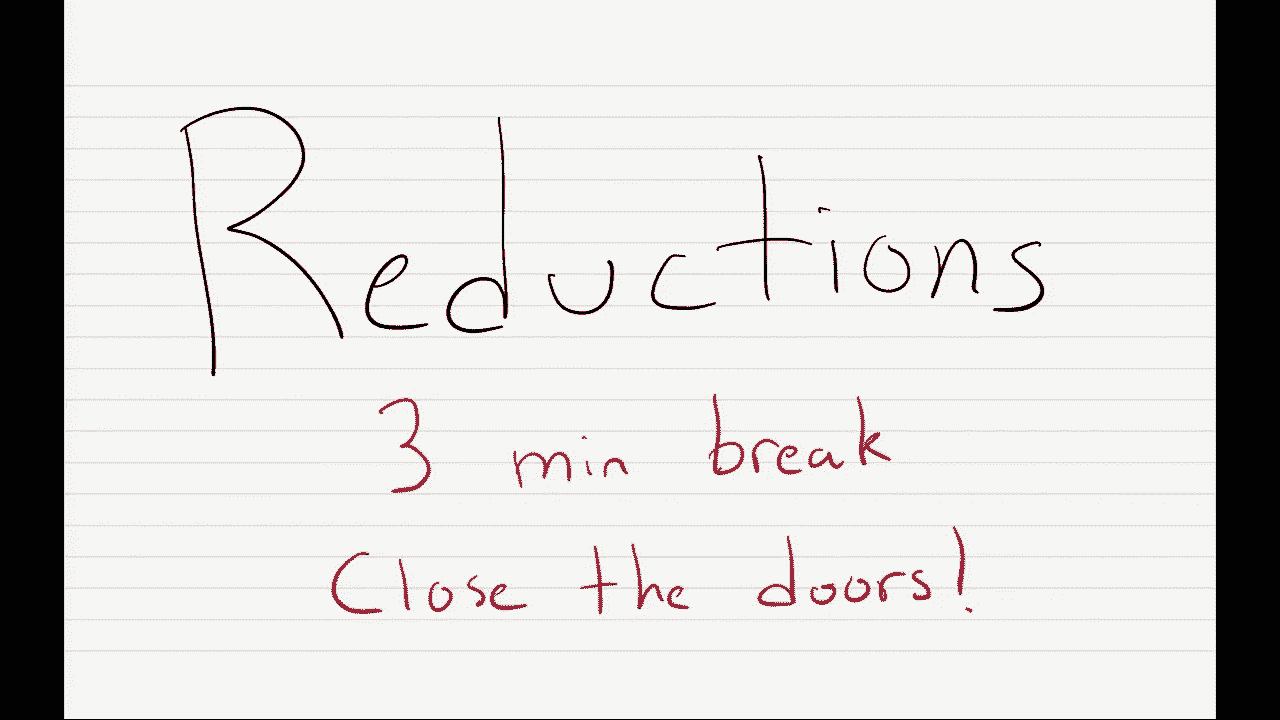 Reductions
3 min break
Close the doors!